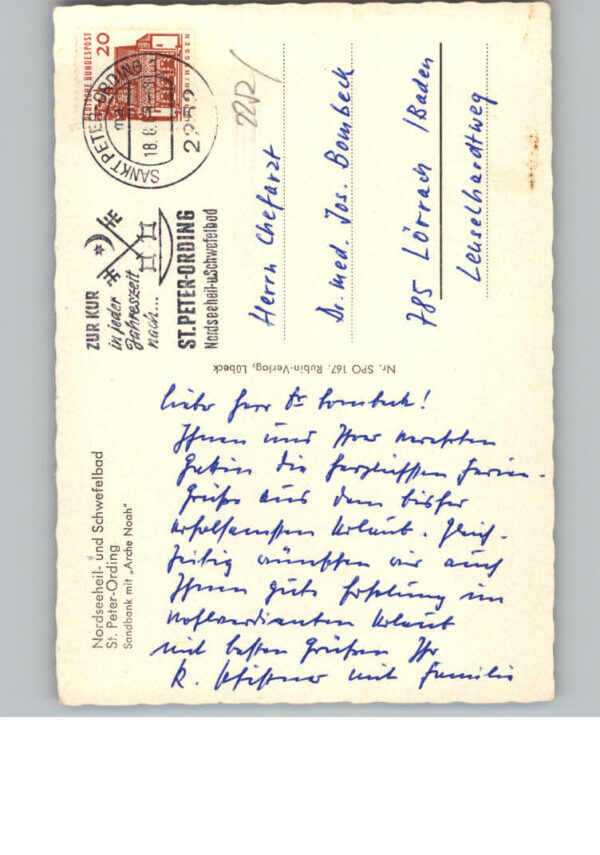 Nordseeheil- und Schwefelbad
St. Peter-Ording
Sandbank mit „Arche Noah"
Lieber Herr Dr. Bombeck!
Ihnen und Ihrer verehrten
Gattin die herzlichsten Ferien-
Grüße aus dem bisher
erholsamsten Urlaub. Gleich-
zeitig wünschen wir auch
Ihnen gute Erholung im
wohlverdienten Urlaub
mit besten Grüßen Ihr
K. mit Familie
Nr. SPO 167. Rubin-Verlag, Lübeck
ZUR KUR
in jeder
Jahreszeit
nach...
ST. PETER-ORDING
Nordseeheil-u.Schwefelbad
DEUTSCHE BUNDESPOST
20
SANKT PETER-ORDING
18.8.
2252
2212/
Herrn Chefarzt
Dr. med. Jos. Bombeck
785 Lörrach /Baden
Leuselhardtweg